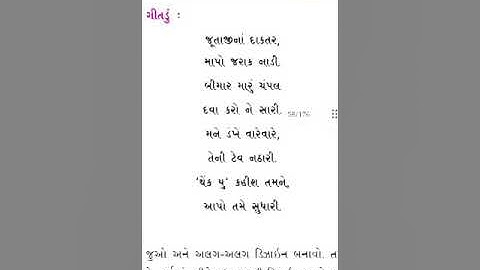 ગીતડું :
જૂતાજીનાં દાકતર,
માપો જરાક નાડી.
બીમાર મારું ચંપલ
દવા કરો ને સારી.
58/176
મને ડંખે વારેવારે,
તેની ટેવ નઠારી.
'થેંક યુ' કહીશ તમને,
આપો તમે સુધારી.
જુઓ અને અલગ-અલગ ડિઝાઇન બનાવો. ત